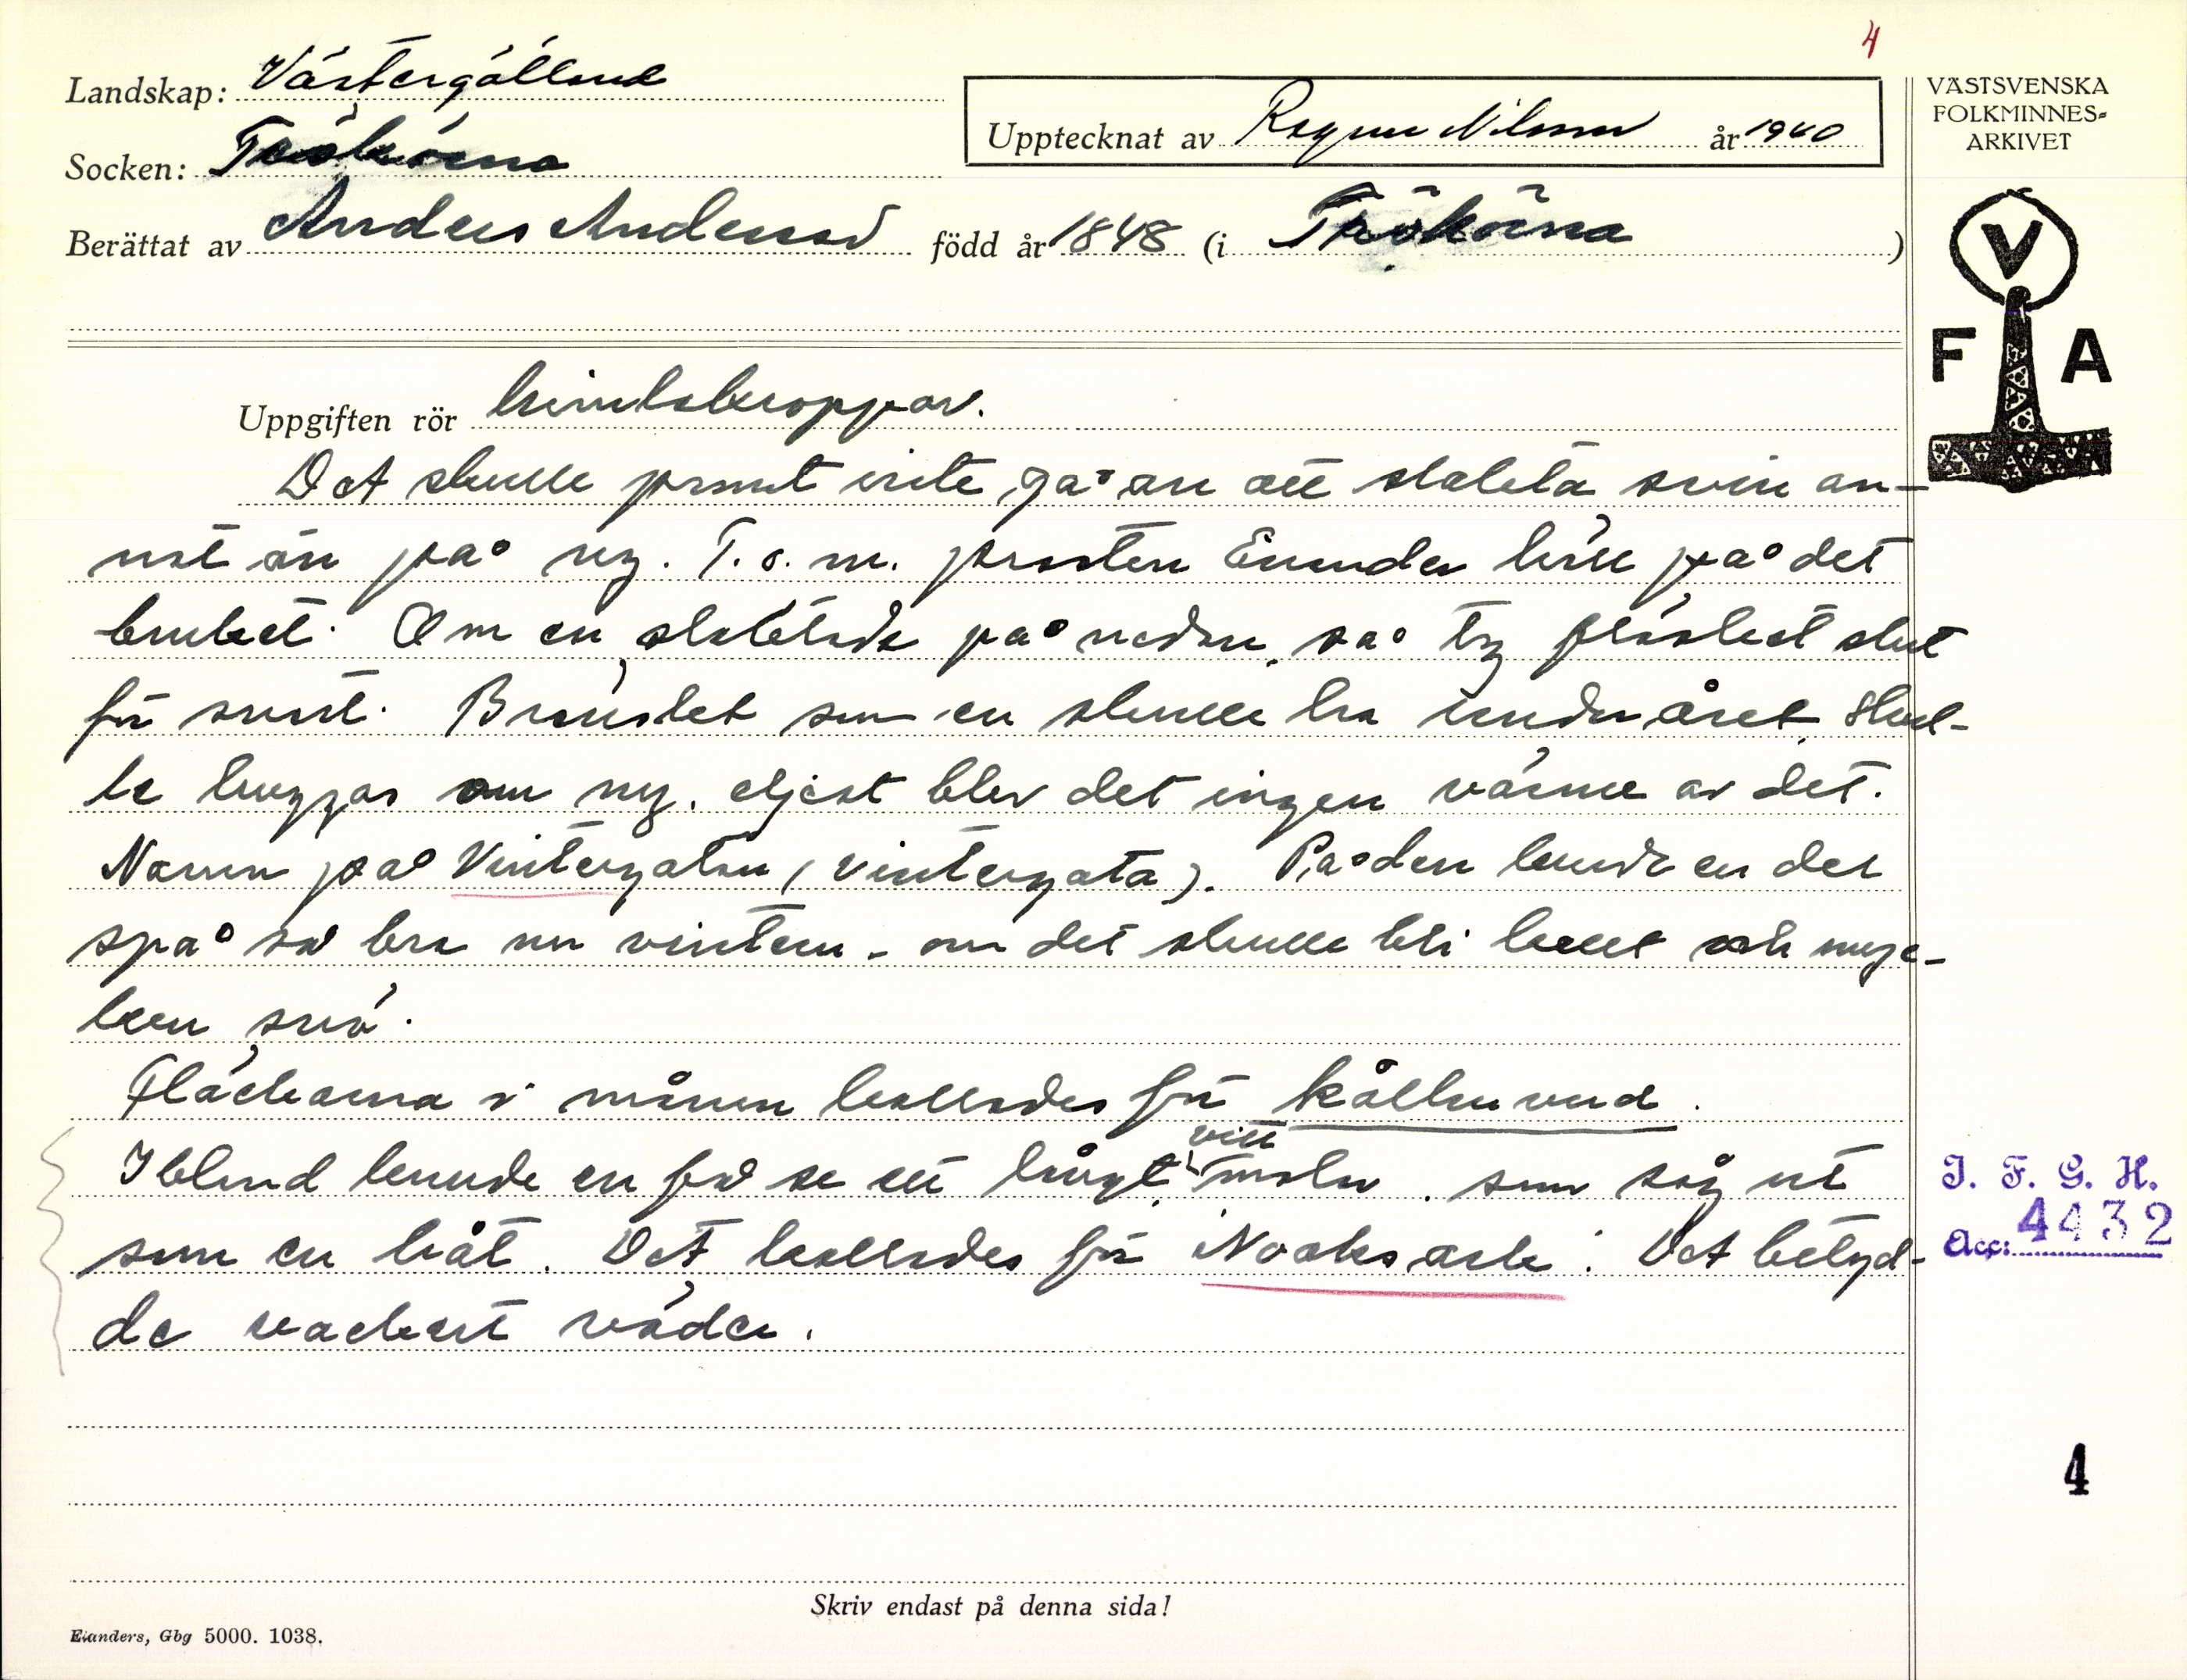 4
Landskap: Västergötland
Socken: Tråökörna
Upptecknat av Ragnar Nilsson år 1940
Berättat av Anders Andersson född år 1848 (i Tråökörna)
VÄSTSVENSKA
FOLKMINNES-
ARKIVET
V
F A
Uppgiften rör himlakroppar.
Det skulle prompt inte gå an att slakta svin an-
nat än på ny. T.o.m. prosten Emunder höll på det
bruket. Om en slaktade på nedan, så tog fläsket slut
för snart. Bränslet som en skulle ha under året skul-
le huggas om ny, eljest blev det ingen värme av det.
Namn på Vintergatan (vintergata). På den kunde en del
spå sa bra um vintern - om det skulle bli kallt och myc-
ken snö.
Fläckarna i månen kallades för kållhuvud.
Ibland kunde en få se ett långt vitt moln, som såg ut
som en båt. Det kallades för Noaks ark. Det betyd-
de vackert väder.
I. F. G. H.
Acc: 4432
4
Skriv endast på denna sida!
Elanders, Gbg 5000. 1038.